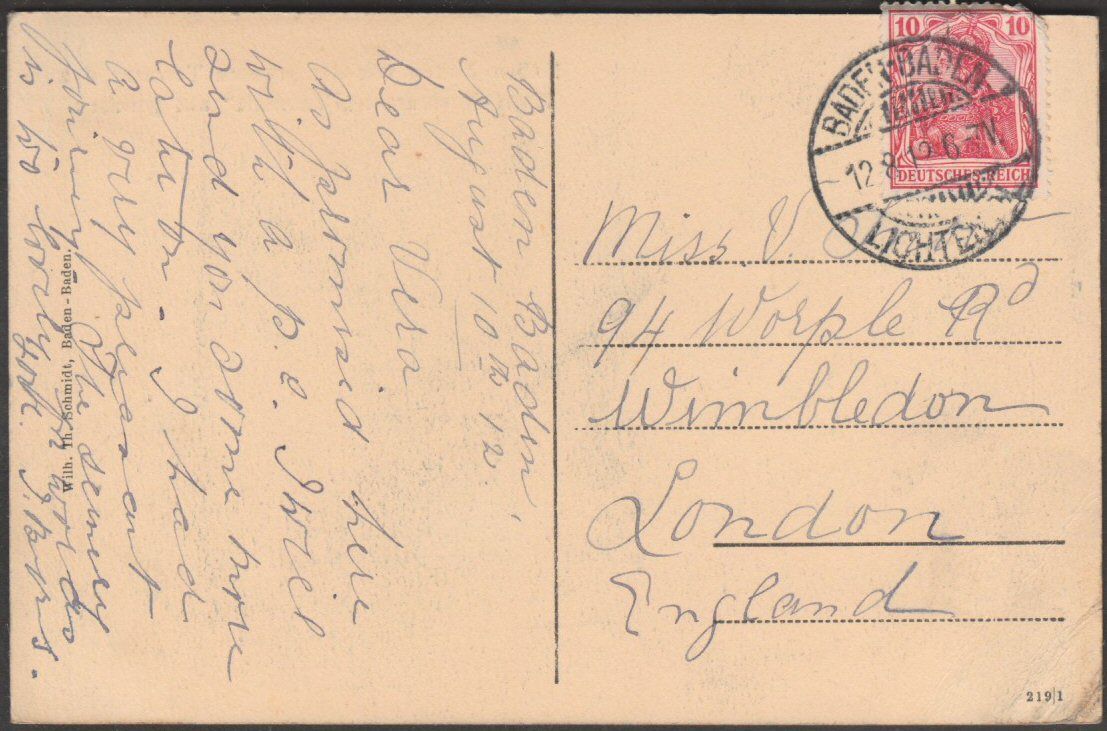 Baden Baden,
August 10th 12.
Dear Vera
As promised here
with a p.c. I will
send you some more
later. I had
a very pleasant
journey. The scenery
is too lovely for words
Wilh. Th. Schmidt, Baden-Baden.
10 10
DEUTSCHES REICH
BADEN-BADEN
12.8.12.6-7N.
LICHTEN
Miss. V.
94 Worple Rd
Wimbledon
London
England
219/1